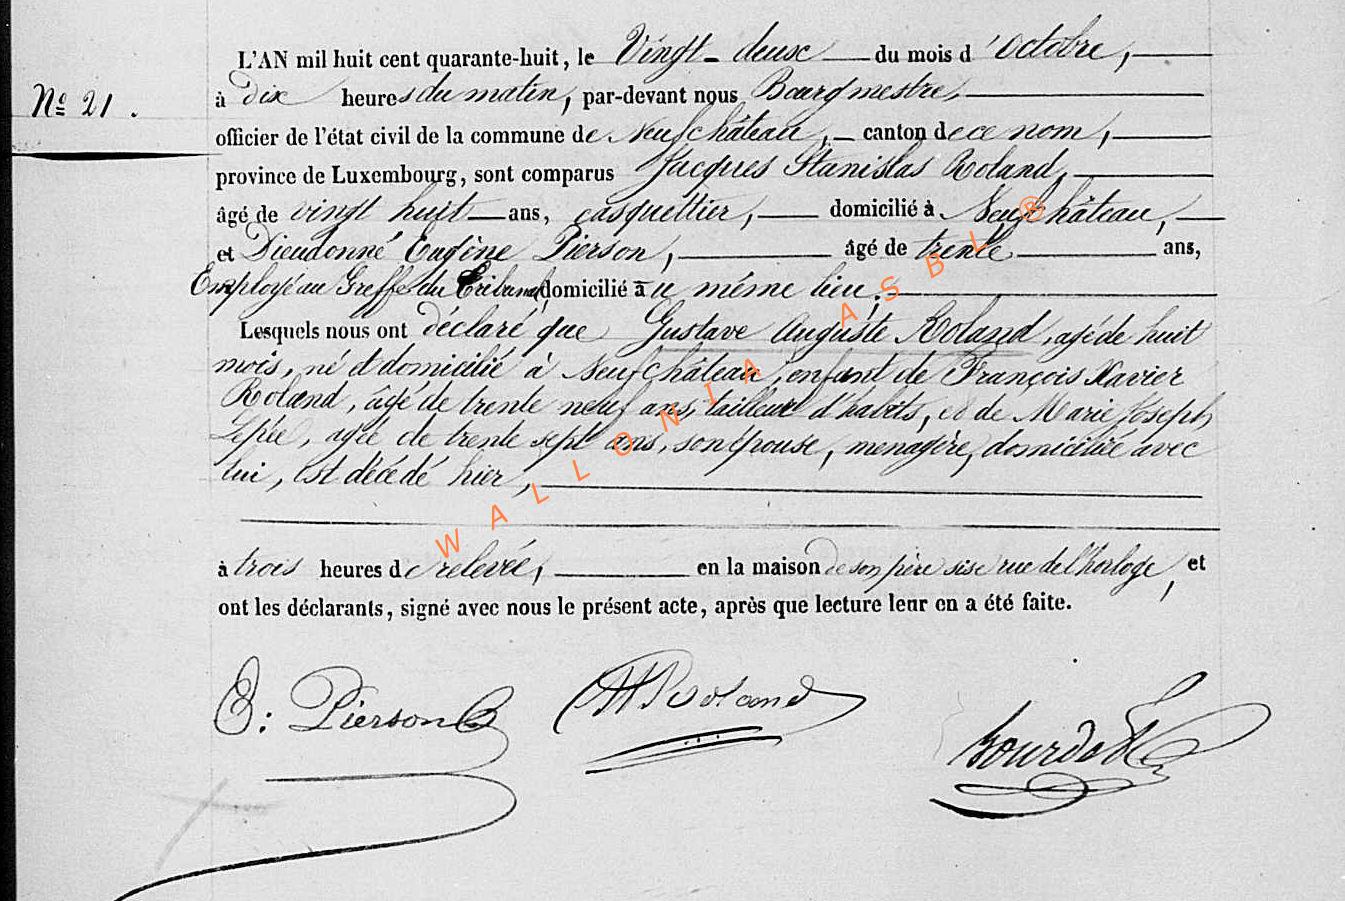 L'AN mil huit cent quarante-huit, le Vingt-deux du mois d'Octobre,
à dix heures du matin, par-devant nous Bourgmestre,
Nº 21.
officier de l'état civil de la commune de Neufchâteau, canton de ce nom,
province de Luxembourg, sont comparus Jacques Stanislas Roland,
âgé de vingt huit ans, casquettier, domicilié à Neufchâteau,
et Dieudonné Eugène Pierson, âgé de trente ans,
Employé au Greffe du Tribunal, domicilié au même lieu;
Lesquels nous ont déclaré que Gustave Auguste Roland, agé de huit
mois, né et domicilié à Neufchâteau, enfant de François Xavier
Roland, âgé de trente neuf ans, tailleur d'habits, et de Marie Joseph
Lepée, agée de trente sept ans, son épouse, menagère, domiciliée avec
lui, est décédé hier,
à trois heures de relevée, en la maison de son père sise rue de l'horloge, et
ont les déclarants, signé avec nous le présent acte, après que lecture leur en a été faite.
E: Pierson Roland Bourdo
WALLONIA ASBL ®